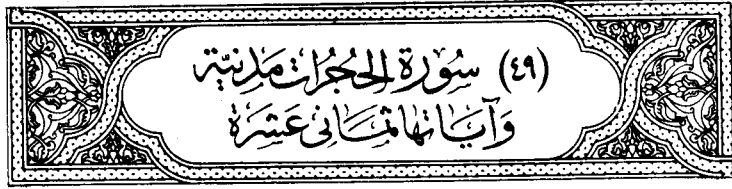 (٤٩) سُورَة الحُجُرات مَدنِيَّة
وَآيَاتهَا ثمَانى عَشَرَة